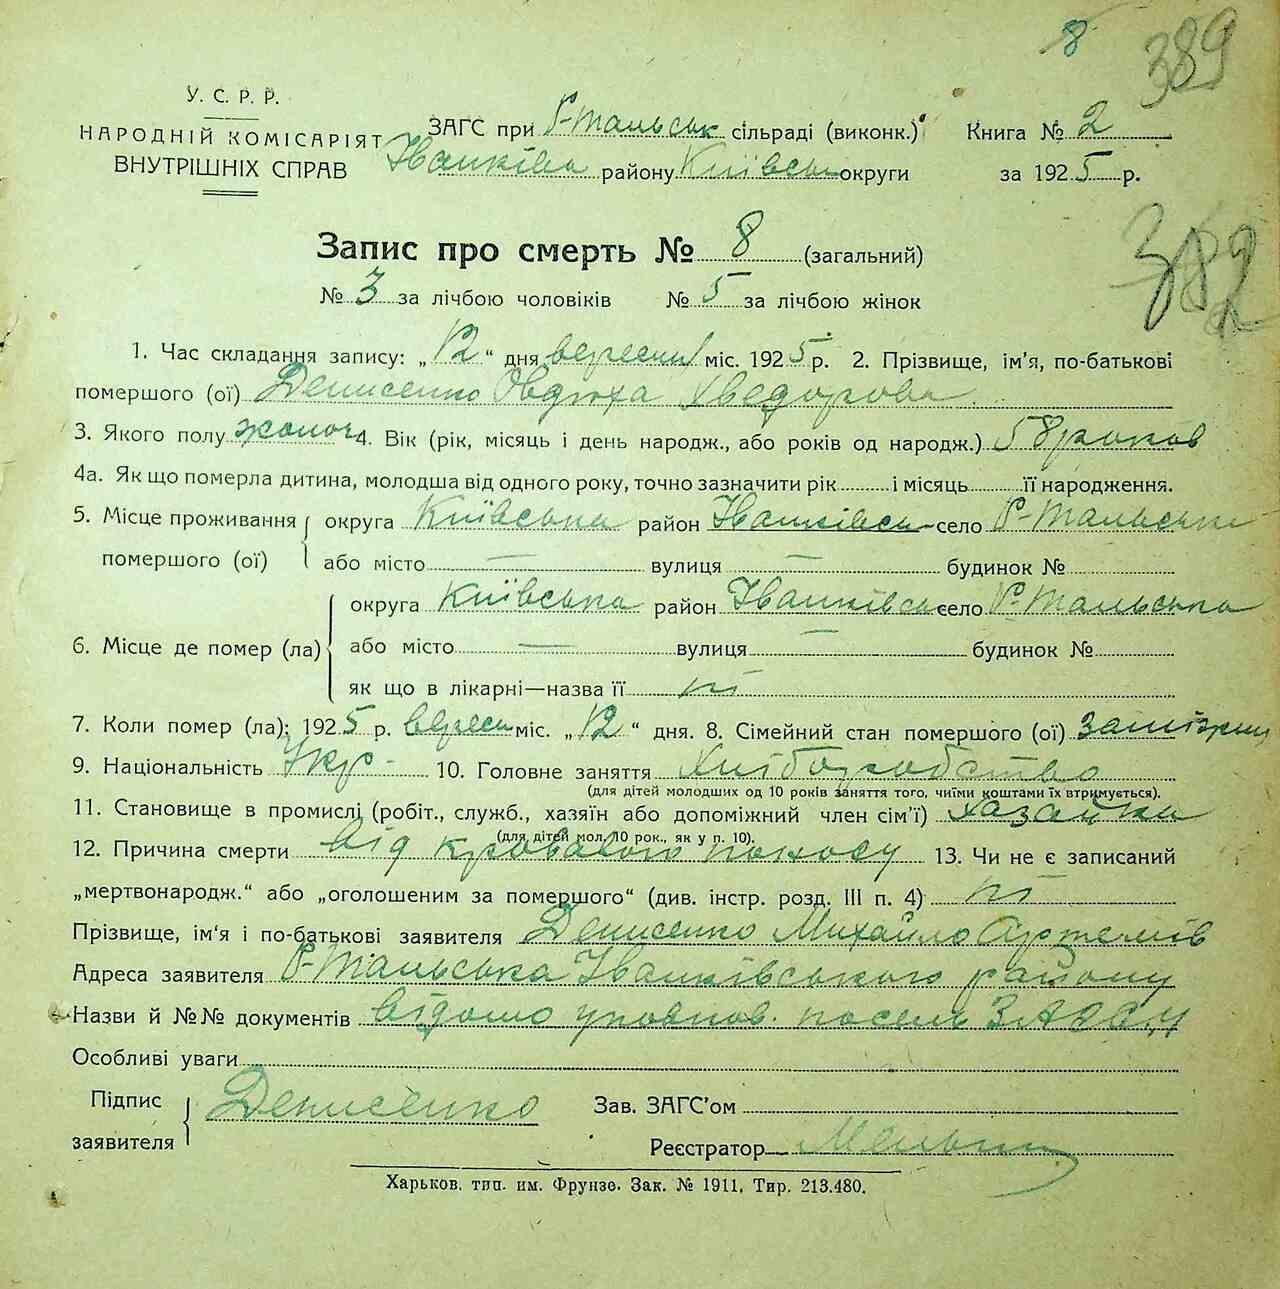 8 389
У. С. Р. Р.
НАРОДНІЙ КОМІСАРІЯТ
ВНУТРІШНІХ СПРАВ
ЗАГС при Р-Тальськ сільраді (виконк.) Книга № 2
Іванківа району Київськ округи за 1925 р.
382
Запис про смерть № 8 (загальний)
№ 3 за лічбою чоловіків № 5 за лічбою жінок
1. Час складання запису: „12“ дня вересня міс. 1925 р. 2. Прізвище, ім'я, по-батькові
помершого (ої) Денисенко Овдюха Хведорова
3. Якого полу жоноч 4. Вік (рік, місяць і день народж., або років од народж.) 58 роков
4а. Як що померла дитина, молодша від одного року, точно зазначити рік і місяць її народження.
5. Місце проживання помершого (ої) округа Київська район Іванківськ село Р-Тальська
або місто — вулиця — будинок №
6. Місце де помер (ла) округа Київська район Іванківськ село Р-Тальська
або місто — вулиця — будинок №
як що в лікарні—назва її ні
7. Коли помер (ла): 1925 р. вересн міс. „12“ дня. 8. Сімейний стан помершого (ої)
9. Національність Укр- 10. Головне заняття Хліборобство
(для дітей молодших од 10 років заняття того, чиїми коштами їх втримується).
11. Становище в промислі (робіт., служб., хазяїн або допоміжний член сім'ї) хазайка
(для дітей мол. 10 рок., як у п. 10).
12. Причина смерти від кровавого поносу 13. Чи не є записаний
„мертвонародж.“ або „оголошеним за помершого“ (див. інстр. розд. III п. 4) ні
Прізвище, ім'я і по-батькові заявителя Денисенко Михайло Артемів
Адреса заявителя Р-Тальська Іванківського району
Назви й №№ документів відомо уповнов. посель ЗАГСу
Особливі уваги
Підпис заявителя Денисенко Зав. ЗАГС'ом
Реєстратор
Харьков, тип. им. Фрунзе. Зак. № 1911, Тир. 213.480.